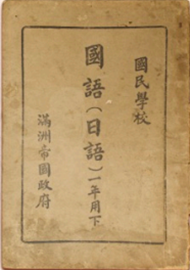 國民學校
國語(日語)一年用下
滿洲帝國政府